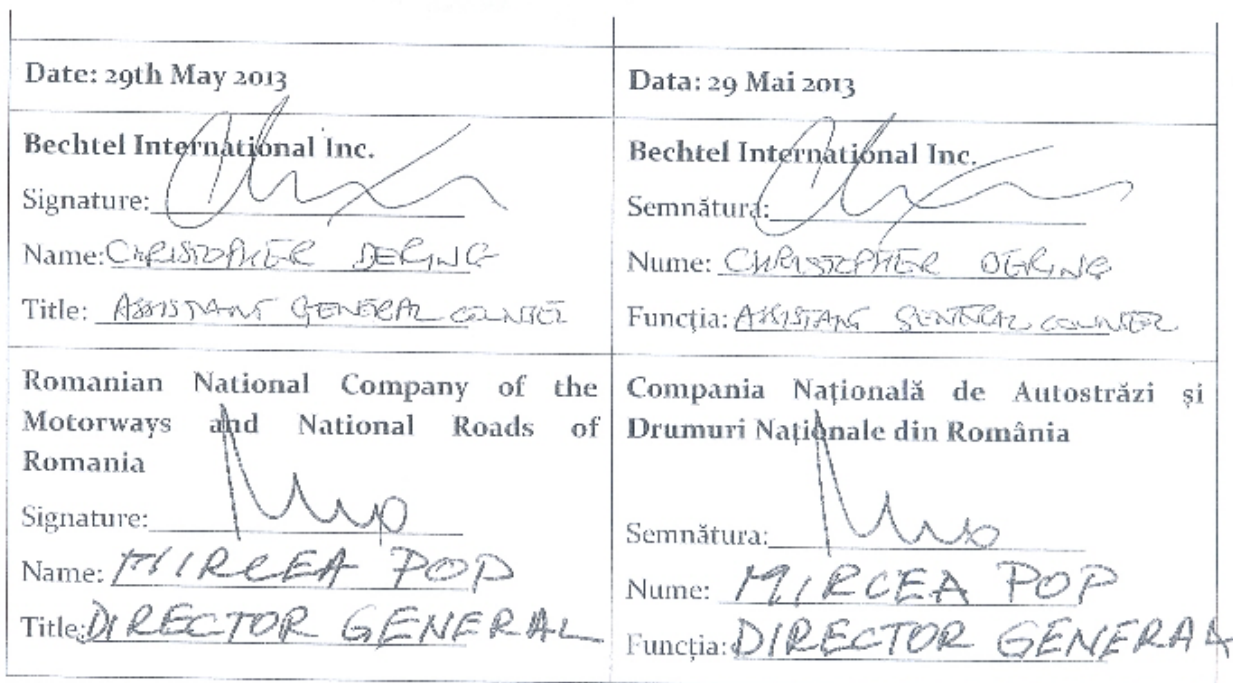 Date: 29th May 2013
Bechtel International Inc.
Signature:
Name: CHRISTOPHER DERING
Title: ASSISTANT GENERAL COUNSEL
Romanian National Company of the
Motorways and National Roads of
Romania
Signature:
Name: MIRCEA POP
Title: DIRECTOR GENERAL
Data: 29 Mai 2013
Bechtel International Inc.
Semnătura:
Nume: CHRISTOPHER DERING
Funcția: ASSISTANT GENERAL COUNSEL
Compania Națională de Autostrăzi și
Drumuri Naționale din România
Semnătura:
Nume: MIRCEA POP
Funcția: DIRECTOR GENERAL